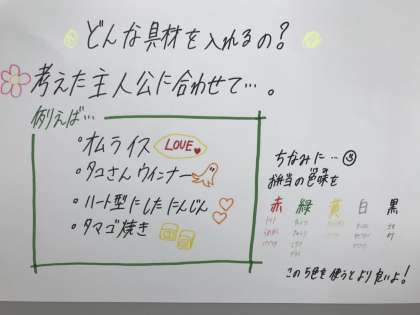 どんな具材を入れるの?
考えた主人公に合わせて…。
例えば…
・オムライス LOVE
・タコさんウィンナー
・ハート型にしたにんじん
・タマゴ焼き
ちなみに…
お弁当の色味を
赤 緑 黄 白 黒
この5色を使うとより良いよ!